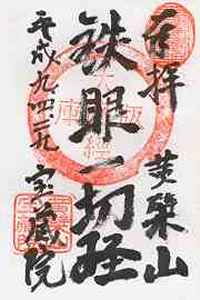 奉拝 黄檗山
鉄眼一切経
平成九、四、二九 宝蔵院